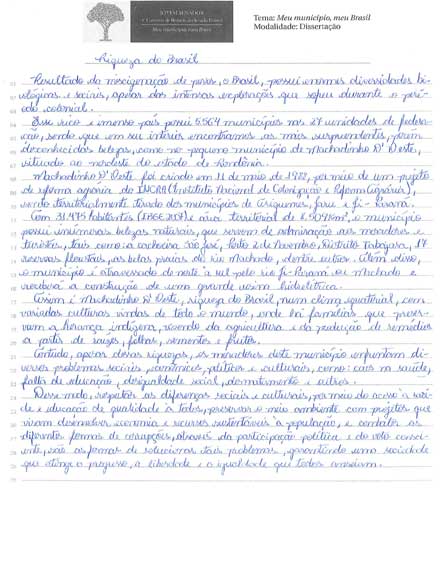 Tema: Meu município, meu Brasil
Modalidade: Dissertação
Meu município, meu Brasil
Riqueza do Brasil
Resultado da miscigenação de povos, o Brasil, possui enormes diversidades bi-
ológicas e sociais, apesar das intensas explorações que sofreu durante o perí-
odo colonial.
Esse rico e imenso país possui 5.564 municípios nas 27 unidades de federa-
ção, sendo que em seu interior encontramos as mais surpreendentes, porém
desconhecidas belezas, como no pequeno município de Machadinho D'Oeste,
situado ao nordeste do estado de Rondônia.
Machadinho D'Oeste foi criado em 11 de maio de 1988, por meio de um projeto
de reforma agrária do INCRA (Instituto Nacional de Colonização e Reforma Agrária),
sendo territorialmente tirado dos municípios de Ariquemes, Jaru e Ji-Paraná.
Com 31.475 habitantes (IBGE 2007) e área territorial de 8.509 Km², o município
possui inúmeras belezas naturais, que servem de admiração aos moradores e
turistas, tais como: a cachoeira São José, 2 de Novembro, Distrito Tabajara, 17
reservas florestais, as belas praias do Rio Machado, dentre outros. Além disso,
o município é atravessado de norte a sul pelo rio Ji-Paraná ou Machado e
receberá a construção de uma grande usina hidrelétrica.
Assim é Machadinho D'Oeste, riqueza do Brasil, num clima equatorial, com
variadas culturas vindas de todo o mundo, onde há famílias que preser-
vam a herança indígena, vivendo da agricultura e da produção de remédios
a partir de raízes, folhas, sementes e frutos.
Contudo, apesar dessas riquezas, os moradores deste município enfrentam di-
versos problemas sociais, econômicos, políticos e culturais, como: caos na saúde,
falta de educação, desigualdade social, desmatamento e outros.
Desse modo, respeitar as diferenças sociais e culturais, por meio do acesso à saú-
de e educação de qualidade a todos, preservar o meio ambiente com projetos que
visam desenvolver economia e recursos sustentáveis à população, e combater as
diferentes formas de corrupções, através da participação política e do voto consci-
ente, são as formas de solucionar tais problemas, garantindo uma sociedade
que atinge o progresso, a liberdade e a igualdade que todos anseiam.